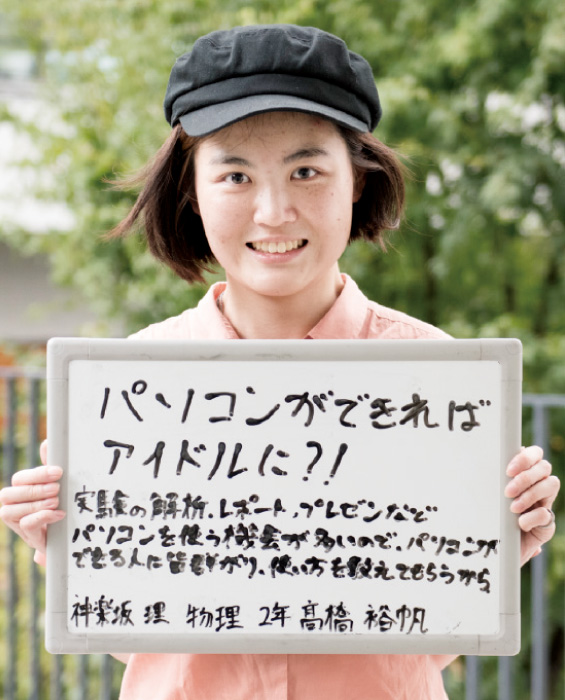 パソコンができれば
アイドルに?!
実験の解析、レポート、プレゼンなど
パソコンを使う機会が多いので、パソコンが
できる人に皆群がり、使い方を教えてもらうから
神楽坂 理 物理 2年 高橋 裕帆